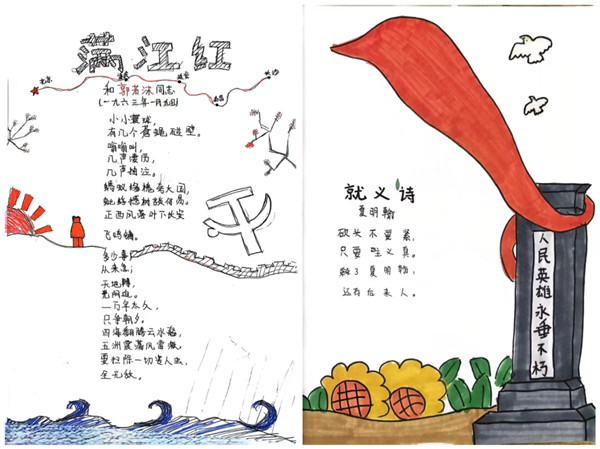 满江红
北京
长沙
和郭若沫同志
(一九六三年一月九日)
小小寰球,
有几个苍蝇碰壁。
嗡嗡叫,
几声凄厉,
几声抽泣。
蚂蚁缘槐夸大国,
蚍蜉撼树谈何易。
正西风落叶下长安
飞鸣镝。
多少事,
从来急;
天地轉,
光阴迫。
一万年太久,
只争朝夕。
四海翻腾云水怒,
五洲震荡风雷激,
要扫除一切害人虫,
全无敌,
就义诗
夏明翰
砍头不要紧,
只要主义真。
杀了夏明翰,
还有后来人。
人民英雄永垂不朽